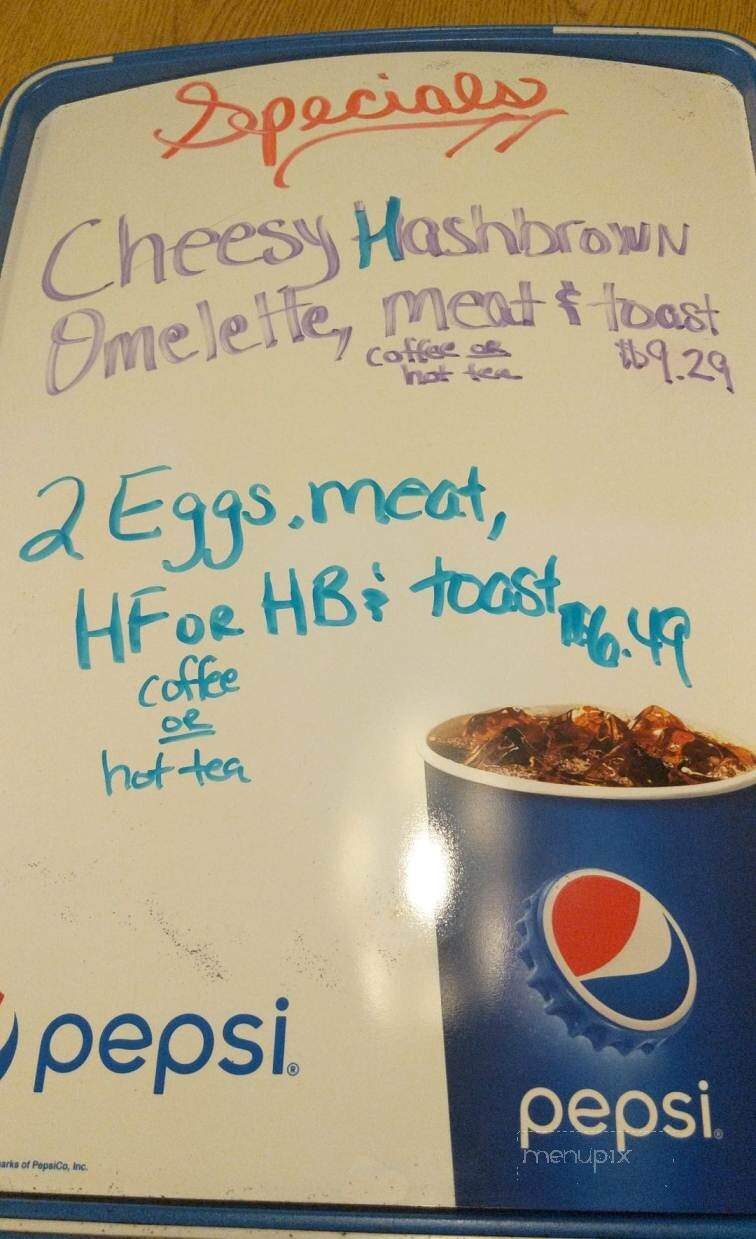 Specials
Cheesy Hashbrown
Omelette, meat & toast
coffee or
hot tea
$9.29
2 Eggs, meat,
HF or HB & toast
$6.49
coffee
or
hot tea
pepsi®
pepsi®
menupix
arks of PepsiCo, Inc.